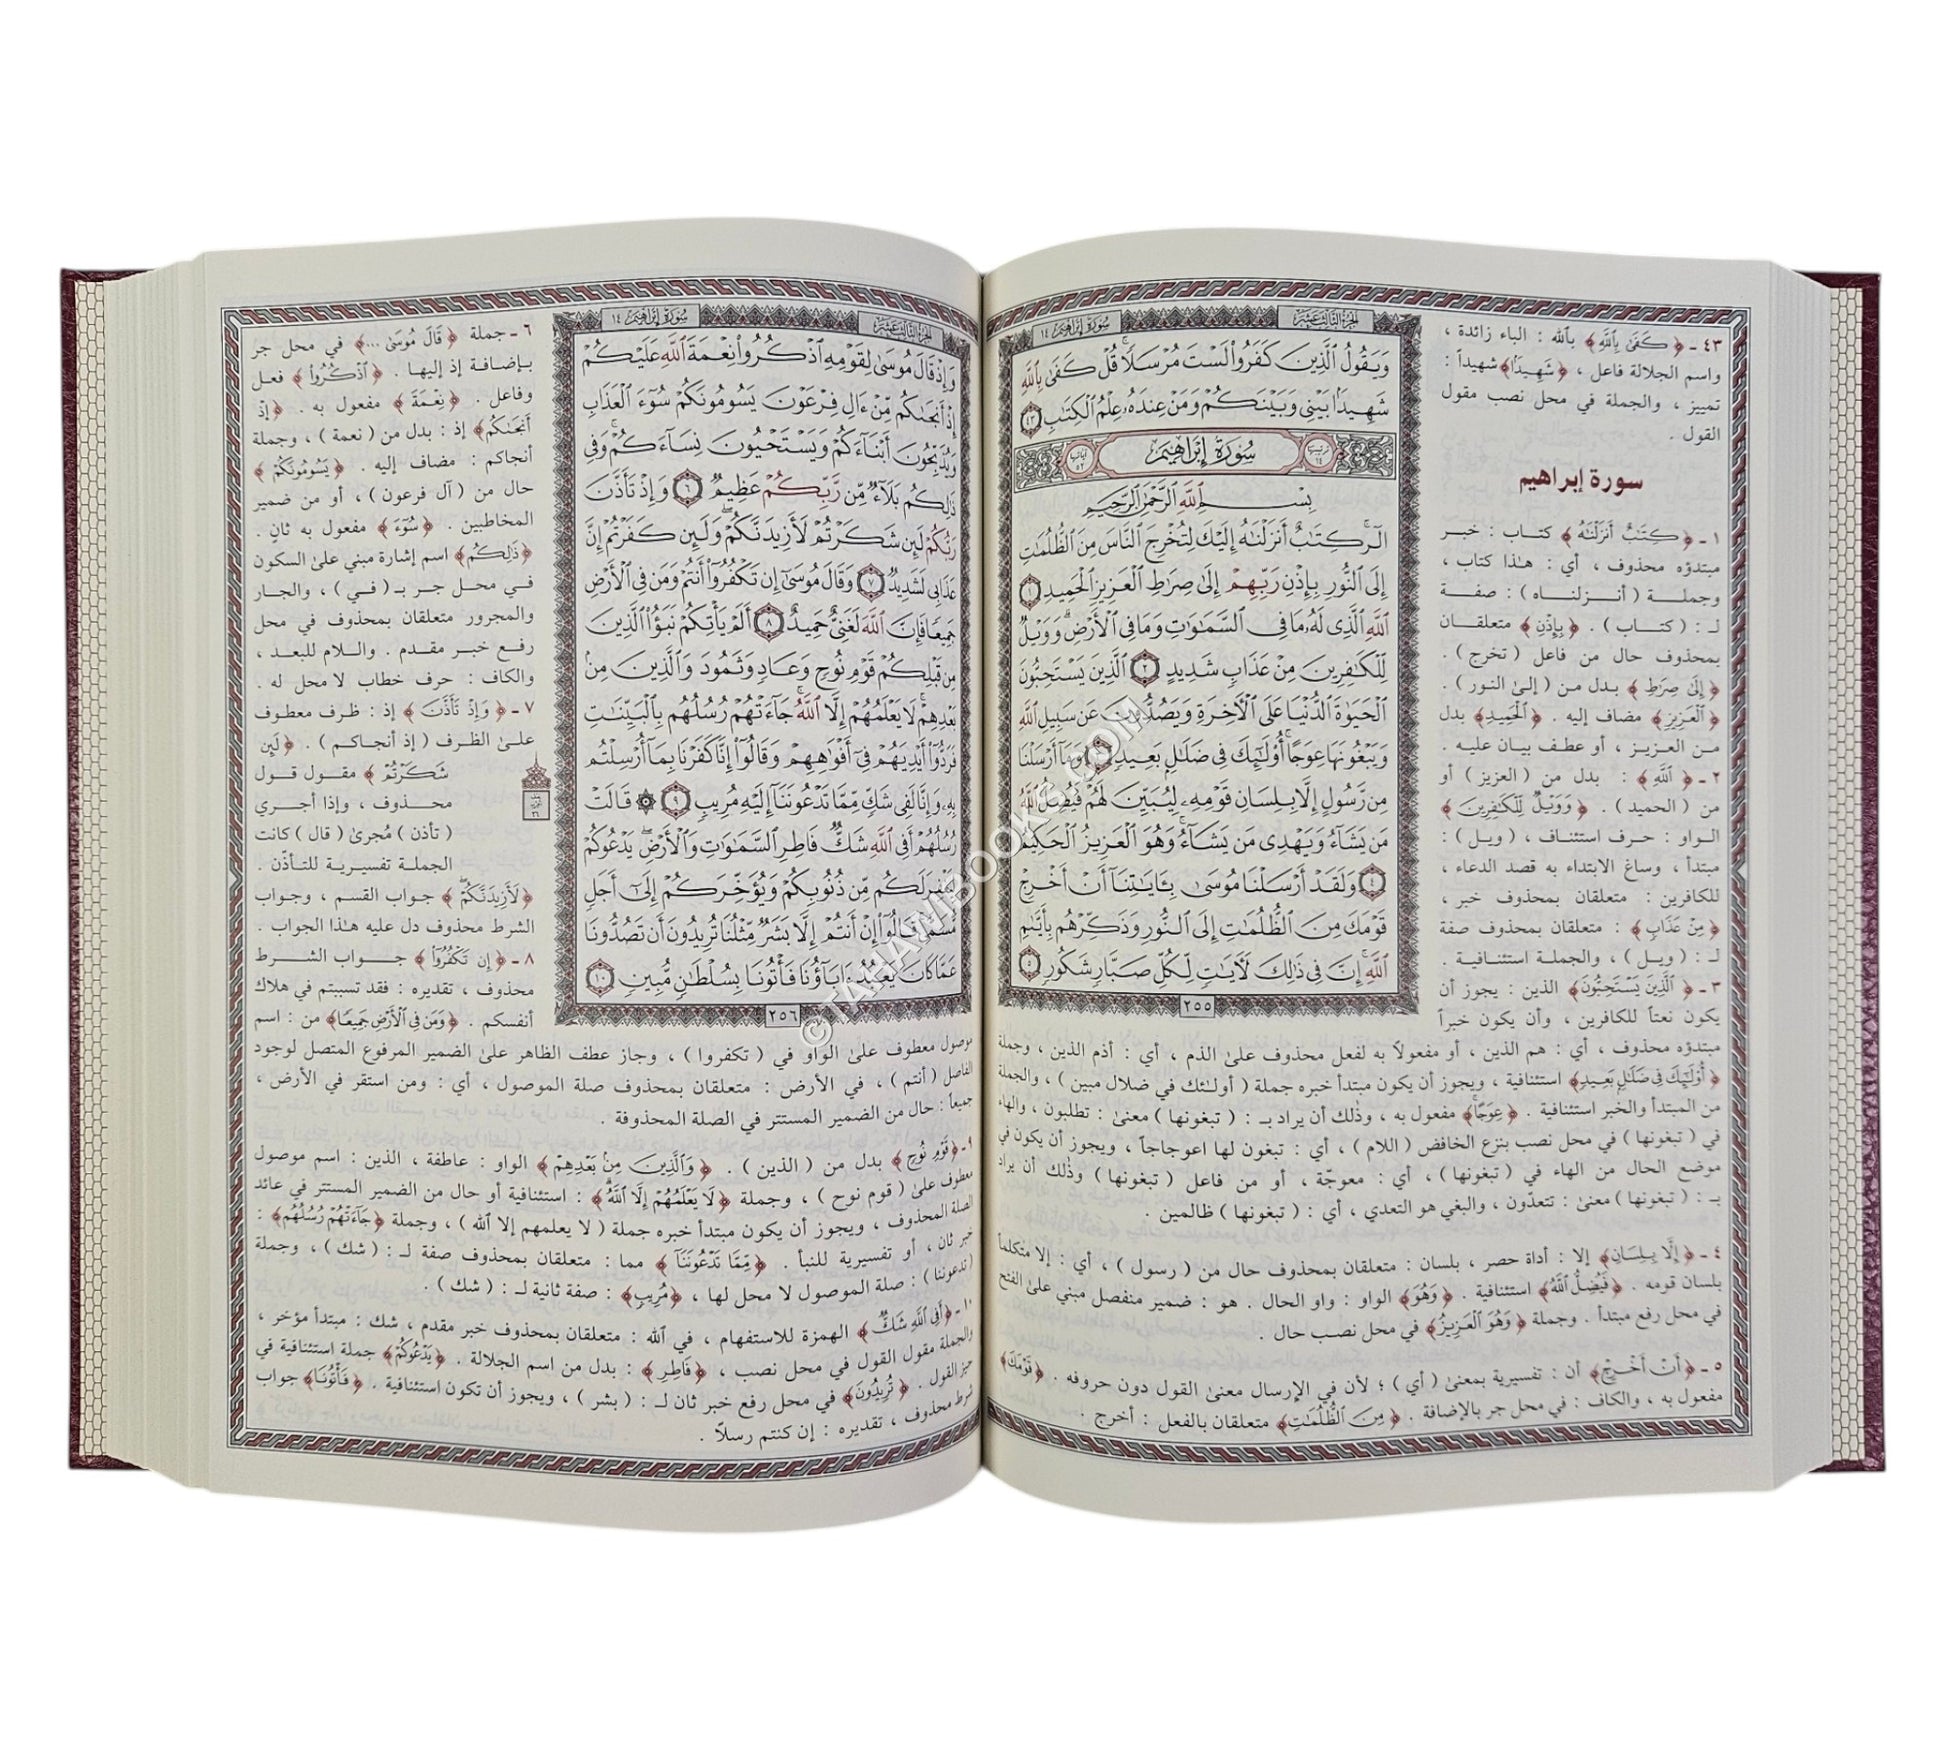 الجزء الثالث عشر
سورة إبراهيم ١٤
وَيَقُولُ ٱلَّذِينَ كَفَرُواْ لَسْتَ مُرْسَلًاۚ قُلْ كَفَىٰ بِٱللَّهِ
شَهِيدَۢا بَيْنِي وَبَيْنَكُمْ وَمَنْ عِندَهُۥ عِلْمُ ٱلْكِتَٰبِ ٤٣
ترتيبها ١٤ سُورَةُ إِبْرَاهِيمَ آياتها ٥٢
بِسْمِ ٱللَّهِ ٱلرَّحْمَٰنِ ٱلرَّحِيمِ
الٓرۚ كِتَٰبٌ أَنزَلْنَٰهُ إِلَيْكَ لِتُخْرِجَ ٱلنَّاسَ مِنَ ٱلظُّلُمَٰتِ
إِلَى ٱلنُّورِ بِإِذْنِ رَبِّهِمْ إِلَىٰ صِرَٰطِ ٱلْعَزِيزِ ٱلْحَمِيدِ ١
ٱللَّهِ ٱلَّذِي لَهُۥ مَا فِي ٱلسَّمَٰوَٰتِ وَمَا فِي ٱلْأَرْضِۗ وَوَيْلٌ
لِّلْكَٰفِرِينَ مِنْ عَذَابٍ شَدِيدٍ ٢ ٱلَّذِينَ يَسْتَحِبُّونَ
ٱلْحَيَوٰةَ ٱلدُّنْيَا عَلَى ٱلْأٓخِرَةِ وَيَصُدُّونَ عَن سَبِيلِ ٱللَّهِ
وَيَبْغُونَهَا عِوَجًاۚ أُوْلَٰٓئِكَ فِي ضَلَٰلٍۭ بَعِيدٍ ٣ وَمَآ أَرْسَلْنَا
مِن رَّسُولٍ إِلَّا بِلِسَانِ قَوْمِهِۦ لِيُبَيِّنَ لَهُمْۖ فَيُضِلُّ ٱللَّهُ
مَن يَشَآءُ وَيَهْدِي مَن يَشَآءُۚ وَهُوَ ٱلْعَزِيزُ ٱلْحَكِيمُ
٤ وَلَقَدْ أَرْسَلْنَا مُوسَىٰ بِـَٔايَٰتِنَآ أَنْ أَخْرِجْ
قَوْمَكَ مِنَ ٱلظُّلُمَٰتِ إِلَى ٱلنُّورِ وَذَكِّرْهُم بِأَيَّىٰمِ
ٱللَّهِۚ إِنَّ فِي ذَٰلِكَ لَأٓيَٰتٍ لِّكُلِّ صَبَّارٍ شَكُورٍ ٥
٢٥٥
٤٣ ـ ﴿كَفَىٰ بِٱللَّهِ﴾ بالله : الباء زائدة ،
واسم الجلالة فاعل ، ﴿شَهِيدَۢا﴾ شهيداً :
تمييز ، والجملة في محل نصب مقول
القول .
سورة إبراهيم
١ ـ ﴿كِتَٰبٌ أَنزَلْنَٰهُ﴾ كتاب : خبر
مبتدؤه محذوف ، أي : هذا كتاب ،
وجملة ( أنزلناه ) : صفة
لـ : ( كتاب ) . ﴿بِإِذْنِ﴾ متعلقان
بمحذوف حال من فاعل ( تخرج ) .
﴿إِلَىٰ صِرَٰطِ﴾ بدل من ( إلى النور ) .
﴿ٱلْعَزِيزِ﴾ مضاف إليه . ﴿ٱلْحَمِيدِ﴾ بدل
من العزيز ، أو عطف بيان عليه .
٢ ـ ﴿ٱللَّهِ﴾ : بدل من ( العزيز ) أو
من ( الحميد ) . ﴿وَوَيْلٌ لِّلْكَٰفِرِينَ﴾
الواو : حرف استئناف ، ( ويل ) :
مبتدأ ، وساغ الابتداء به قصد الدعاء ،
للكافرين : متعلقان بمحذوف خبر ،
﴿مِنْ عَذَابٍ﴾ : متعلقان بمحذوف صفة
لـ : ( ويل ) ، والجملة استئنافية .
٣ ـ ﴿ٱلَّذِينَ يَسْتَحِبُّونَ﴾ الذين : يجوز أن
يكون نعتاً للكافرين ، وأن يكون خبراً
مبتدؤه محذوف ، أي : هم الذين ، أو مفعولاً به لفعل محذوف على الذم ، أي : أذم الذين ، وجملة
﴿أُوْلَٰٓئِكَ فِي ضَلَٰلٍۭ بَعِيدٍ﴾ استئنافية ، ويجوز أن يكون مبتدأ خبره جملة ( أولئك في ضلال مبين ) ، والجملة
من المبتدأ والخبر استئنافية . ﴿عِوَجًاۚ﴾ مفعول به ، وذلك أن يراد بـ : ( تبغونها ) معنى : تطلبون ، والهاء
في ( تبغونها ) في محل نصب بنزع الخافض ( اللام ) ، أي : تبغون لها اعوجاجاً ، ويجوز أن يكون في
موضع الحال من الهاء في ( تبغونها ) ، أي : معوجّة ، أو من فاعل ( تبغونها ) وذلك أن يراد
بـ : ( تبغونها ) معنى : تتعدّون ، والبغي هو التعدي ، أي : ( تبغونها ) ظالمين .
٤ ـ ﴿إِلَّا بِلِسَانِ﴾ إلا : أداة حصر ، بلسان : متعلقان بمحذوف حال من ( رسول ) ، أي : إلا متكلماً
بلسان قومه . ﴿فَيُضِلُّ ٱللَّهُ﴾ استئنافية . ﴿وَهُوَ﴾ الواو : واو الحال . هو : ضمير منفصل مبني على الفتح
في محل رفع مبتدأ . وجملة ﴿وَهُوَ ٱلْعَزِيزُ﴾ في محل نصب حال .
٥ ـ ﴿أَنْ أَخْرِجْ﴾ أن : تفسيرية بمعنى ( أي ) ؛ لأن في الإرسال معنى القول دون حروفه . ﴿قَوْمَكَ﴾
مفعول به ، والكاف : في محل جر بالإضافة . ﴿مِنَ ٱلظُّلُمَٰتِ﴾ متعلقان بالفعل : أخرج .
الجزء الثالث عشر
سورة إبراهيم ١٤
وَإِذْ قَالَ مُوسَىٰ لِقَوْمِهِ ٱذْكُرُواْ نِعْمَةَ ٱللَّهِ عَلَيْكُمْ
إِذْ أَنجَىٰكُم مِّنْ ءَالِ فِرْعَوْنَ يَسُومُونَكُمْ سُوٓءَ ٱلْعَذَابِ
وَيُذَبِّحُونَ أَبْنَآءَكُمْ وَيَسْتَحْيُونَ نِسَآءَكُمْۚ وَفِي
ذَٰلِكُم بَلَآءٌ مِّن رَّبِّكُمْ عَظِيمٌ ٦ وَإِذْ تَأَذَّنَ
رَبُّكُمْ لَئِن شَكَرْتُمْ لَأَزِيدَنَّكُمْۖ وَلَئِن كَفَرْتُمْ إِنَّ
عَذَابِي لَشَدِيدٌ ٧ وَقَالَ مُوسَىٰٓ إِن تَكْفُرُوٓاْ أَنتُمْ وَمَن فِي ٱلْأَرْضِ
جَمِيعًا فَإِنَّ ٱللَّهَ لَغَنِيٌّ حَمِيدٌ ٨ أَلَمْ يَأْتِكُمْ نَبَؤُاْ ٱلَّذِينَ
مِن قَبْلِكُمْ قَوْمِ نُوحٍ وَعَادٍ وَثَمُودَ وَٱلَّذِينَ مِنۢ
بَعْدِهِمْۛ لَا يَعْلَمُهُمْ إِلَّا ٱللَّهُۚ جَآءَتْهُمْ رُسُلُهُم بِٱلْبَيِّنَٰتِ
فَرَدُّوٓاْ أَيْدِيَهُمْ فِيٓ أَفْوَٰهِهِمْ وَقَالُوٓاْ إِنَّا كَفَرْنَا بِمَآ أُرْسِلْتُم
بِهِۦ وَإِنَّا لَفِي شَكٍّ مِّمَّا تَدْعُونَنَآ إِلَيْهِ مُرِيبٍ ٩ ۞ قَالَتْ
رُسُلُهُمْ أَفِي ٱللَّهِ شَكٌّ فَاطِرِ ٱلسَّمَٰوَٰتِ وَٱلْأَرْضِۖ يَدْعُوكُمْ
لِيَغْفِرَ لَكُم مِّن ذُنُوبِكُمْ وَيُؤَخِّرَكُمْ إِلَىٰٓ أَجَلٍ
مُّسَمًّىۚ قَالُوٓاْ إِنْ أَنتُمْ إِلَّا بَشَرٌ مِّثْلُنَا تُرِيدُونَ أَن تَصُدُّونَا
عَمَّا كَانَ يَعْبُدُ ءَابَآؤُنَا فَأْتُونَا بِسُلْطَٰنٍ مُّبِينٍ ١٠
٢٥٦
٦ ـ جملة ﴿قَالَ مُوسَىٰ ...﴾ في محل جر
بإضافة إذ إليها . ﴿ٱذْكُرُواْ﴾ فعل
وفاعل . ﴿نِعْمَةَ﴾ مفعول به . ﴿إِذْ
أَنجَىٰكُم﴾ إذ : بدل من ( نعمة ) ، وجملة
أنجاكم : مضاف إليه . ﴿يَسُومُونَكُمْ﴾
حال من ( آل فرعون ) ، أو من ضمير
المخاطبين . ﴿سُوٓءَ﴾ مفعول به ثانٍ .
﴿ذَٰلِكُم﴾ اسم إشارة مبني على السكون
في محل جر بـ ( في ) ، والجار
والمجرور متعلقان بمحذوف في محل
رفع خبر مقدم . واللام للبعد ،
والكاف : حرف خطاب لا محل له .
٧ ـ ﴿وَإِذْ تَأَذَّنَ﴾ إذ : ظرف معطوف
على الظرف ( إذ أنجاكم ) . ﴿لَئِن
شَكَرْتُمْ﴾ مقول قول
محذوف ، وإذا أجري
( تأذن ) مُجرى ( قال ) كانت
الجملة تفسيرية للتأذّن .
﴿لَأَزِيدَنَّكُمْۖ﴾ جواب القسم ، وجواب
الشرط محذوف دل عليه هذا الجواب .
٨ ـ ﴿إِن تَكْفُرُوٓاْ﴾ جواب الشرط
محذوف ، تقديره : فقد تسببتم في هلاك
أنفسكم . ﴿وَمَن فِي ٱلْأَرْضِ جَمِيعًا﴾ من : اسم
موصول معطوف على الواو في ( تكفروا ) ، وجاز عطف الظاهر على الضمير المرفوع المتصل لوجود
الفاصل ( أنتم ) ، في الأرض : متعلقان بمحذوف صلة الموصول ، أي : ومن استقر في الأرض ،
جميعاً : حال من الضمير المستتر في الصلة المحذوفة .
٩ ـ ﴿قَوْمِ نُوحٍ﴾ بدل من ( الذين ) . ﴿وَٱلَّذِينَ مِنۢ بَعْدِهِمْ﴾ الواو : عاطفة ، الذين : اسم موصول
معطوف على ( قوم نوح ) ، وجملة ﴿لَا يَعْلَمُهُمْ إِلَّا ٱللَّهُ﴾ : استئنافية أو حال من الضمير المستتر في عائد
الصلة المحذوف ، ويجوز أن يكون مبتدأ خبره جملة ( لا يعلمهم إلا الله ) ، وجملة ﴿جَآءَتْهُمْ رُسُلُهُم﴾ :
خبر ثان ، أو تفسيرية للنبأ . ﴿مِّمَّا تَدْعُونَنَآ﴾ مما : متعلقان بمحذوف صفة لـ : ( شك ) ، وجملة
( تدعوننا ) : صلة الموصول لا محل لها ، ﴿مُرِيبٍ﴾ : صفة ثانية لـ : ( شك ) .
١٠ ـ ﴿أَفِي ٱللَّهِ شَكٌّ﴾ الهمزة للاستفهام ، في الله : متعلقان بمحذوف خبر مقدم ، شك : مبتدأ مؤخر ،
والجملة مقول القول في محل نصب ، ﴿فَاطِرِ﴾ : بدل من اسم الجلالة . ﴿يَدْعُوكُمْ﴾ جملة استئنافية في
حيز القول . ﴿تُرِيدُونَ﴾ في محل رفع خبر ثان لـ : ( بشر ) ، ويجوز أن تكون استئنافية . ﴿فَأْتُونَا﴾ جواب
شرط محذوف ، تقديره : إن كنتم رسلاً .
©TAHAMIBOOKS.COM